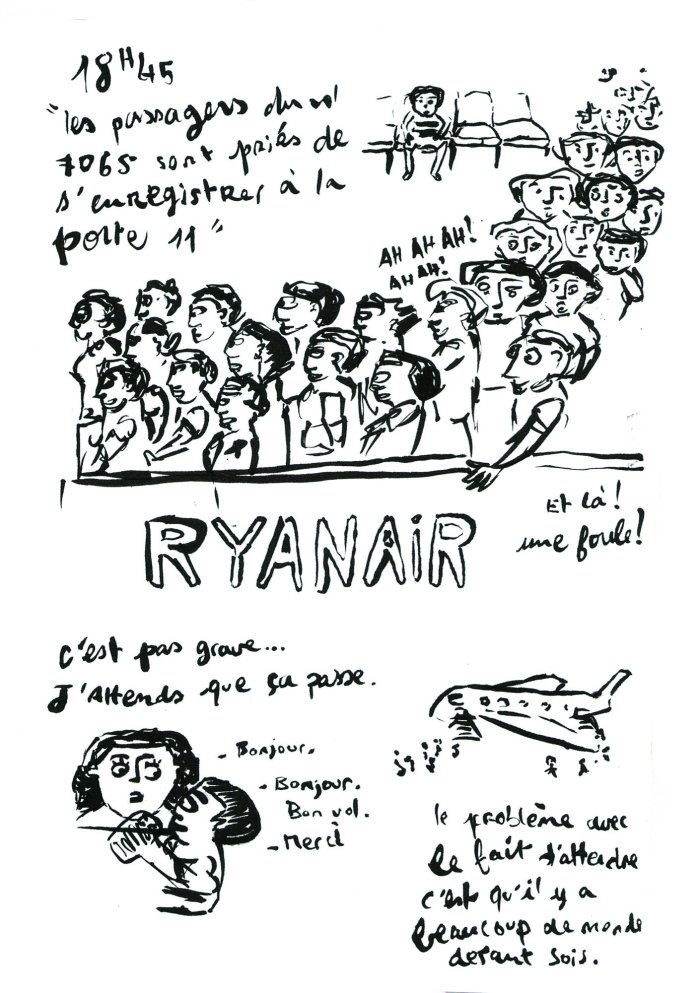 18H45
"les passagers du vol
7065 sont priés de
s'enregistrer à la
porte 11"
AH AH AH!
AH AH!
Et là!
une foule!
RYANAIR
c'est pas grave...
J'Attends que ça passe.
- Bonjour.
- Bonjour.
Bon vol.
- Merci
le problème avec
le fait d'attendre
c'est qu'il y a
beaucoup de monde
devant sois.